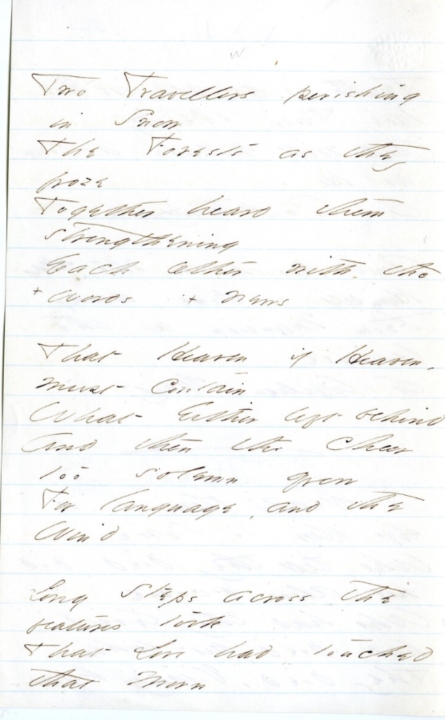 Two Travellers perishing
in Snow
The Forests as they
froze
Together heard them
strengthening
Each other with the
+ words + news
That Heaven if Heaven -
must contain
What Either left behind
And then the cheer
too solemn grew
For language, and the
Wind
Long steps across the
features took
That Love had touched
that Morn